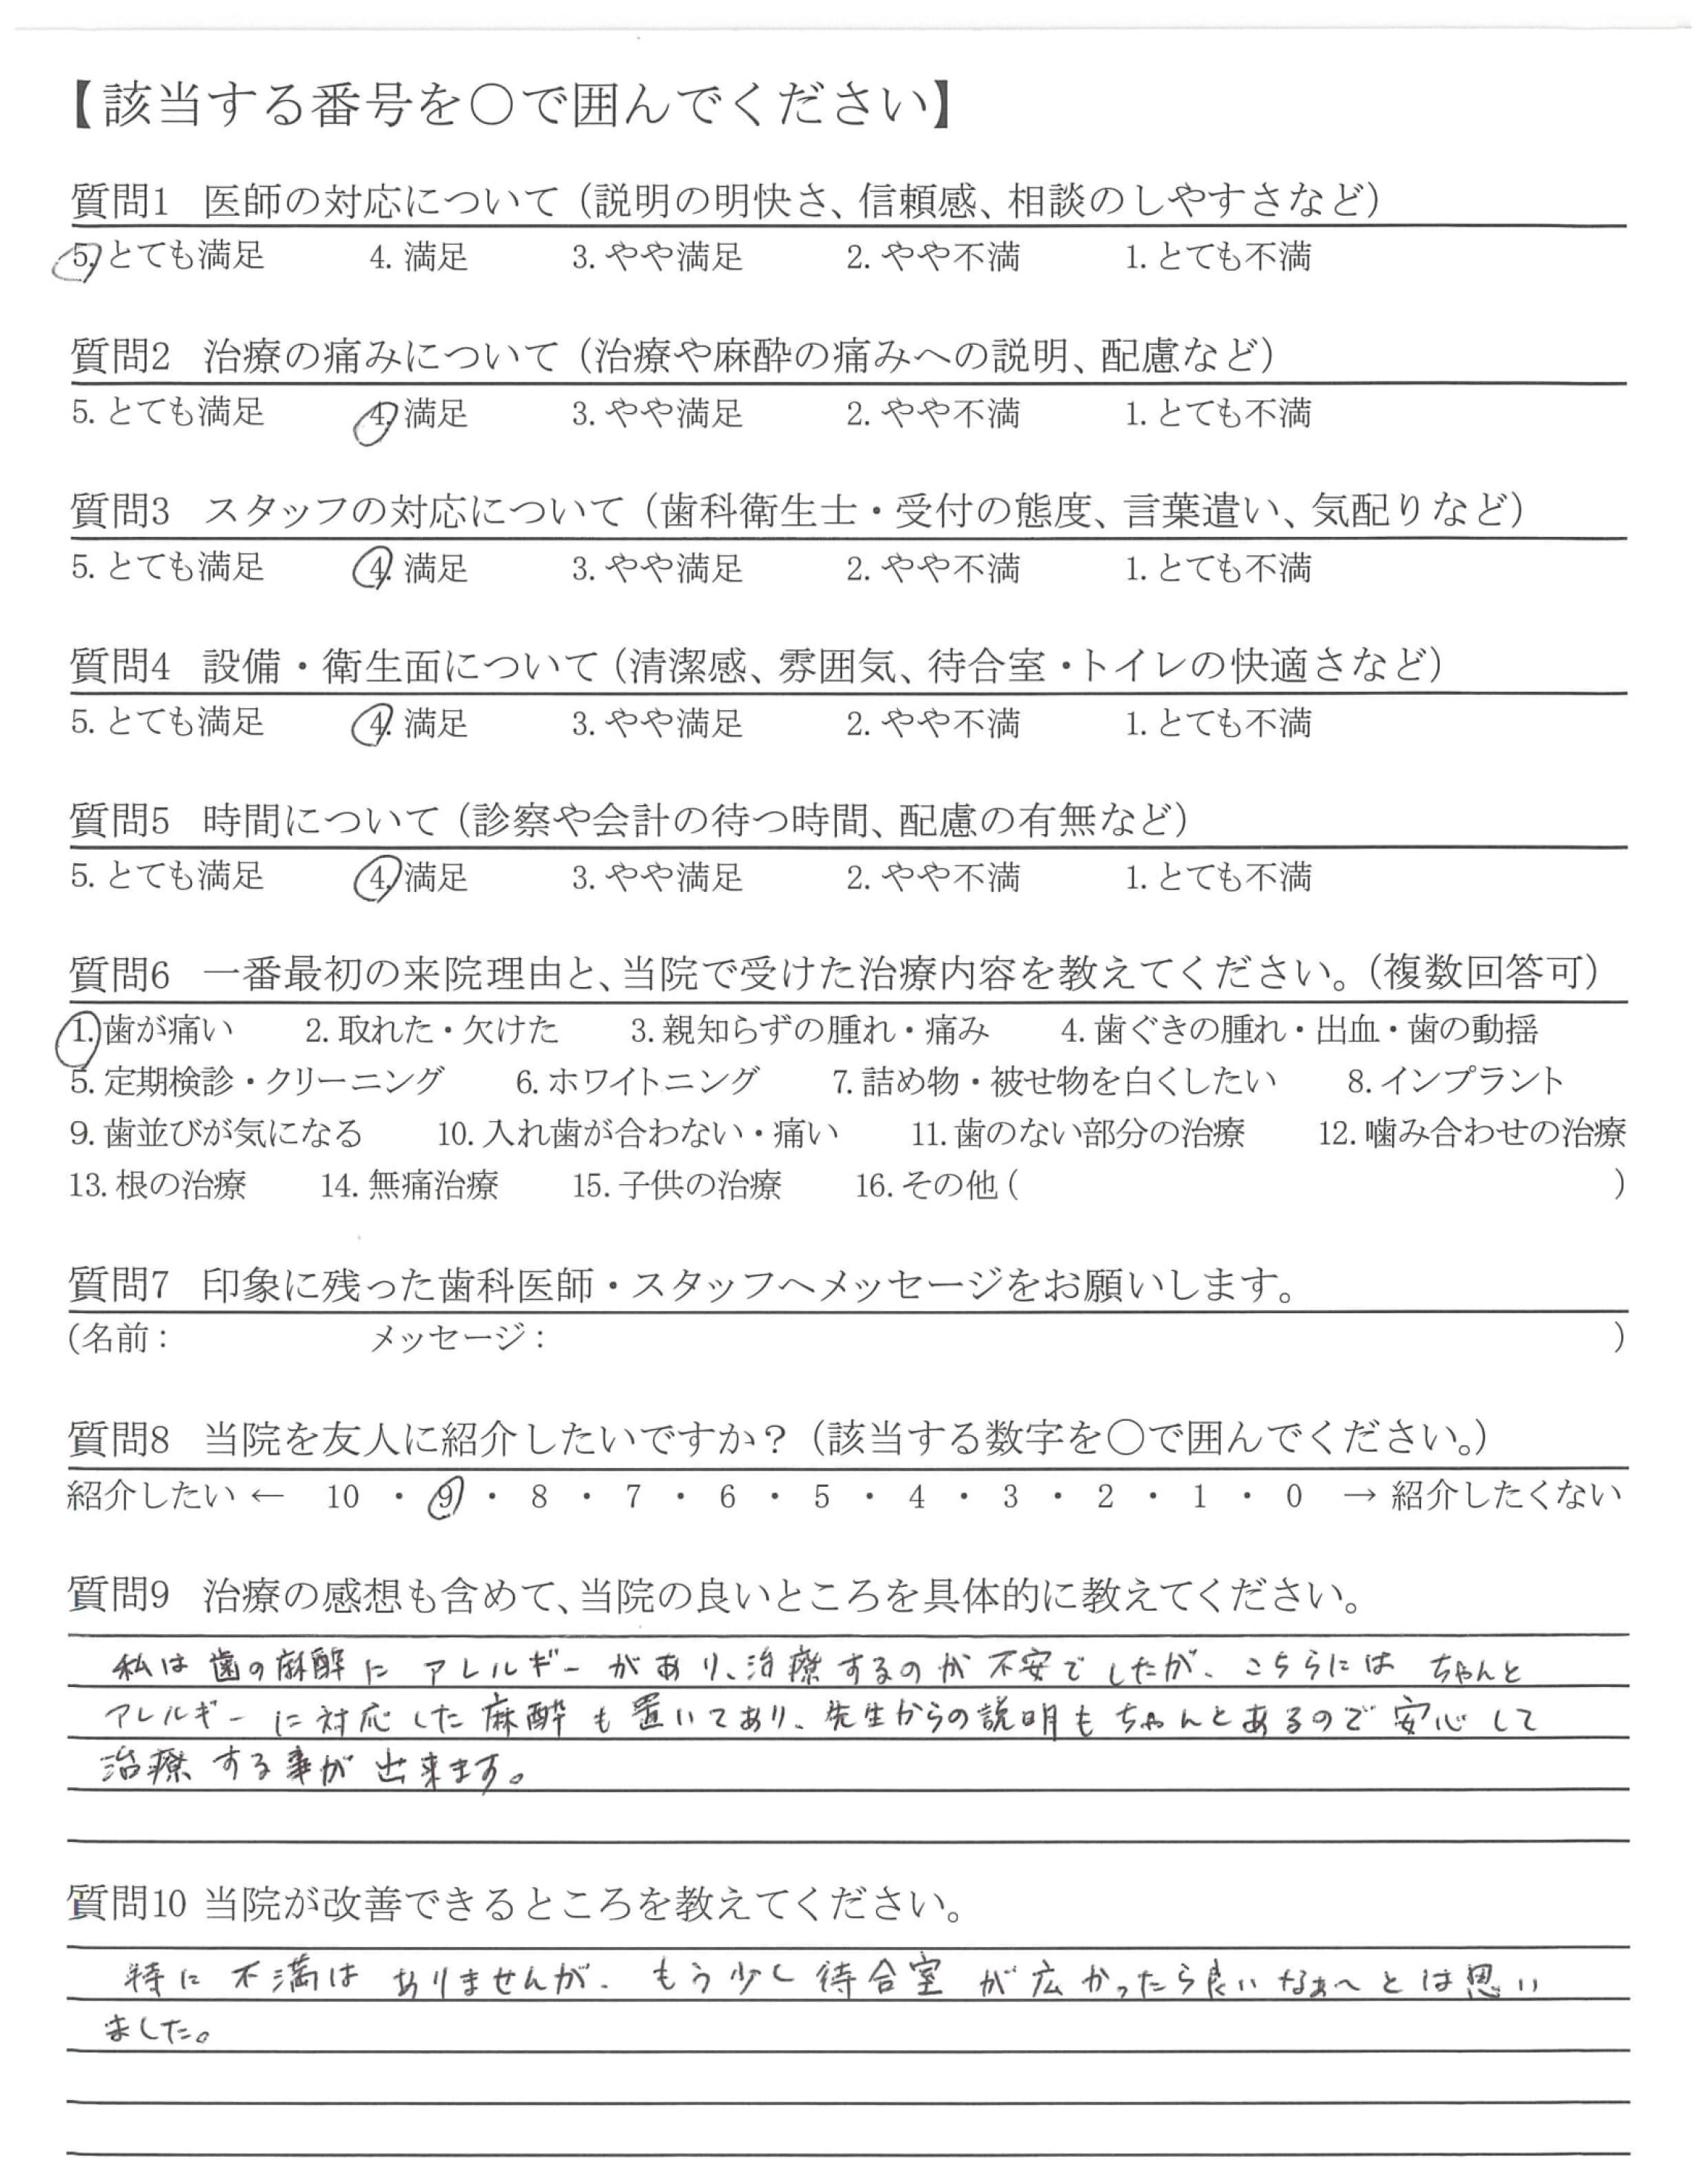 【該当する番号を○で囲んでください】
質問1 医師の対応について（説明の明快さ、信頼感、相談のしやすさなど）
5. とても満足 4. 満足 3. やや満足 2. やや不満 1. とても不満
質問2 治療の痛みについて（治療や麻酔の痛みへの説明、配慮など）
5. とても満足 4. 満足 3. やや満足 2. やや不満 1. とても不満
質問3 スタッフの対応について（歯科衛生士・受付の態度、言葉遣い、気配りなど）
5. とても満足 4. 満足 3. やや満足 2. やや不満 1. とても不満
質問4 設備・衛生面について（清潔感、雰囲気、待合室・トイレの快適さなど）
5. とても満足 4. 満足 3. やや満足 2. やや不満 1. とても不満
質問5 時間について（診察や会計の待つ時間、配慮の有無など）
5. とても満足 4. 満足 3. やや満足 2. やや不満 1. とても不満
質問6 一番最初の来院理由と、当院で受けた治療内容を教えてください。（複数回答可）
1. 歯が痛い 2. 取れた・欠けた 3. 親知らずの腫れ・痛み 4. 歯ぐきの腫れ・出血・歯の動揺
5. 定期検診・クリーニング 6. ホワイトニング 7. 詰め物・被せ物を白くしたい 8. インプラント
9. 歯並びが気になる 10. 入れ歯が合わない・痛い 11. 歯のない部分の治療 12. 噛み合わせの治療
13. 根の治療 14. 無痛治療 15. 子供の治療 16. その他（ ）
質問7 印象に残った歯科医師・スタッフへメッセージをお願いします。
（名前： メッセージ： ）
質問8 当院を友人に紹介したいですか？（該当する数字を○で囲んでください。）
紹介したい ← 10 ・ 9 ・ 8 ・ 7 ・ 6 ・ 5 ・ 4 ・ 3 ・ 2 ・ 1 ・ 0 → 紹介したくない
質問9 治療の感想も含めて、当院の良いところを具体的に教えてください。
私は歯の麻酔にアレルギーがあり、治療するのが不安でしたが、こちらにはちゃんと
アレルギーに対応した麻酔も置いてあり、先生からの説明もちゃんとあるので安心して
治療する事が出来ます。
質問10 当院が改善できるところを教えてください。
特に不満はありませんが、もう少し待合室が広かったら良いなぁ〜とは思い
ました。